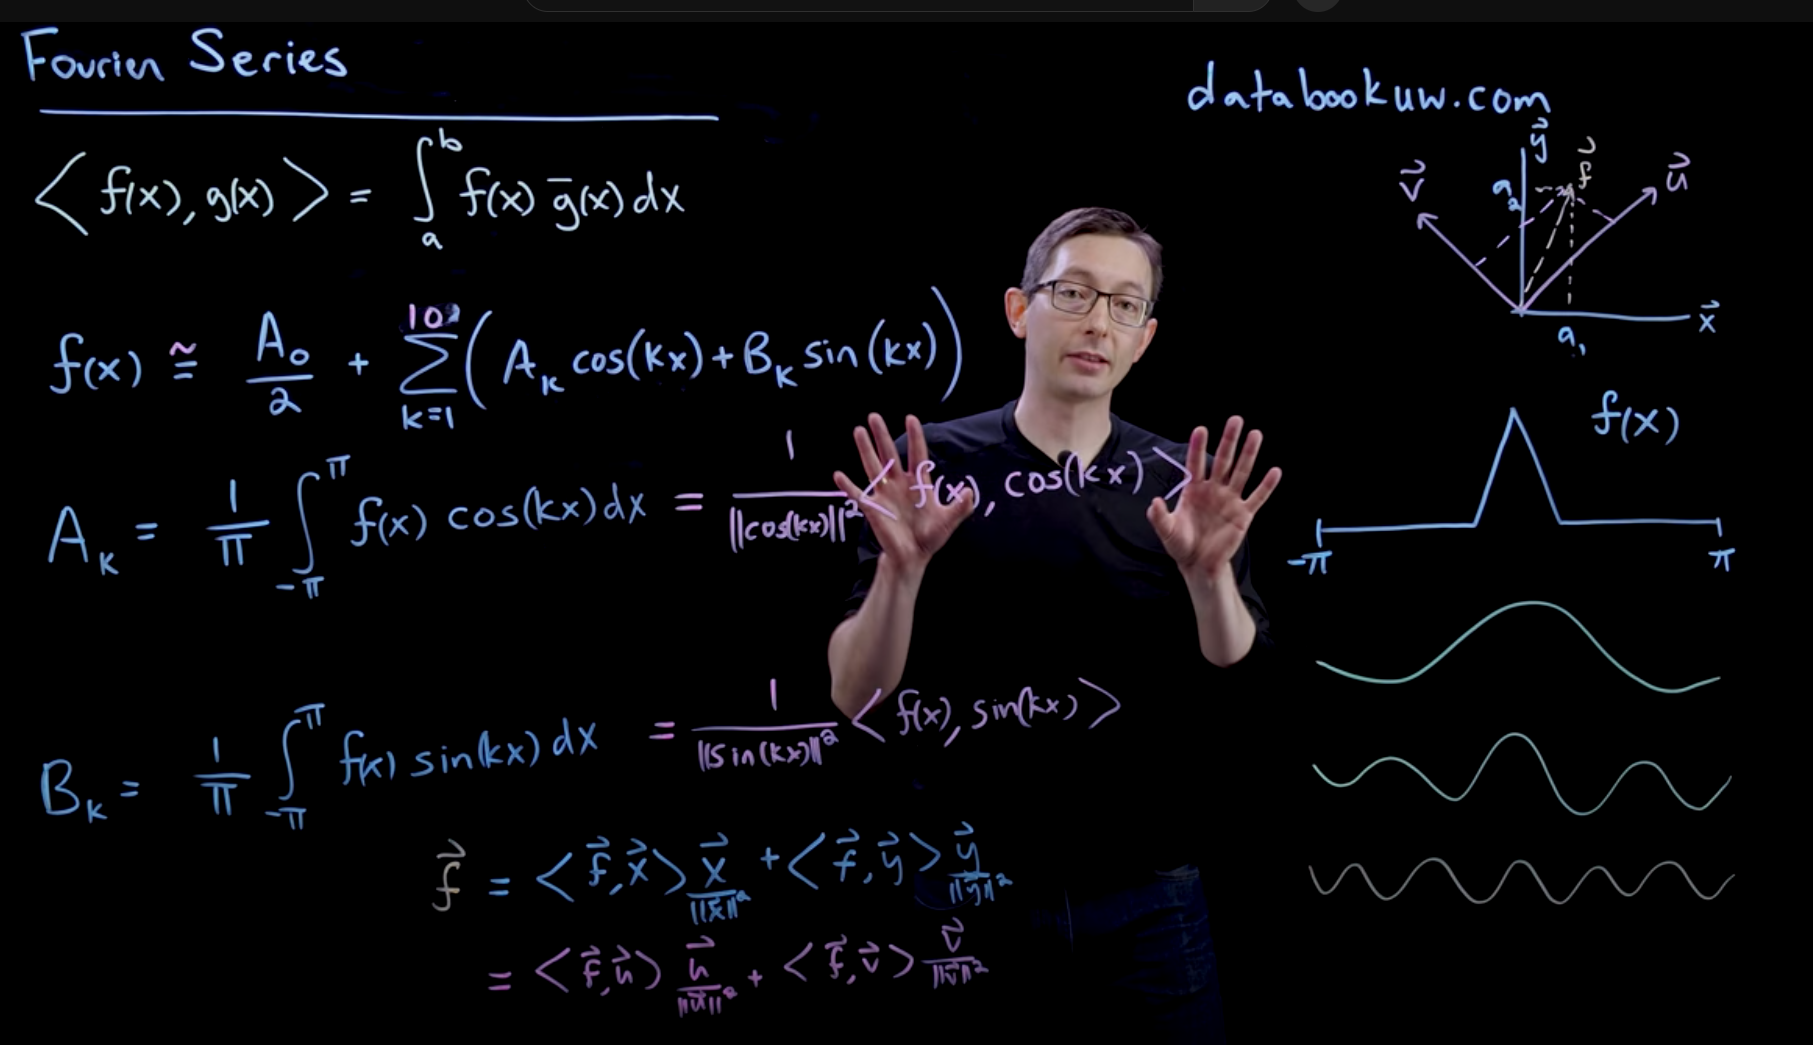 Fourier Series
databookuw.com
⟨ f(x), g(x) ⟩ = ∫_a^b f(x) g̅(x) dx
f(x) ≅ A₀/2 + Σ_{k=1}^{10} ( A_k cos(kx) + B_k sin(kx) )
A_k = 1/π ∫_{-π}^{π} f(x) cos(kx) dx = 1/||cos(kx)||² ⟨ f(x), cos(kx) ⟩
B_k = 1/π ∫_{-π}^{π} f(x) sin(kx) dx = 1/||sin(kx)||² ⟨ f(x), sin(kx) ⟩
f⃗ = ⟨ f⃗, x⃗ ⟩ x⃗/||x⃗||² + ⟨ f⃗, y⃗ ⟩ y⃗/||y⃗||²
= ⟨ f⃗, u⃗ ⟩ u⃗/||u⃗||² + ⟨ f⃗, v⃗ ⟩ v⃗/||v⃗||²
y⃗
v⃗
a₂
f⃗
u⃗
x⃗
a₁
f(x)
-π
π